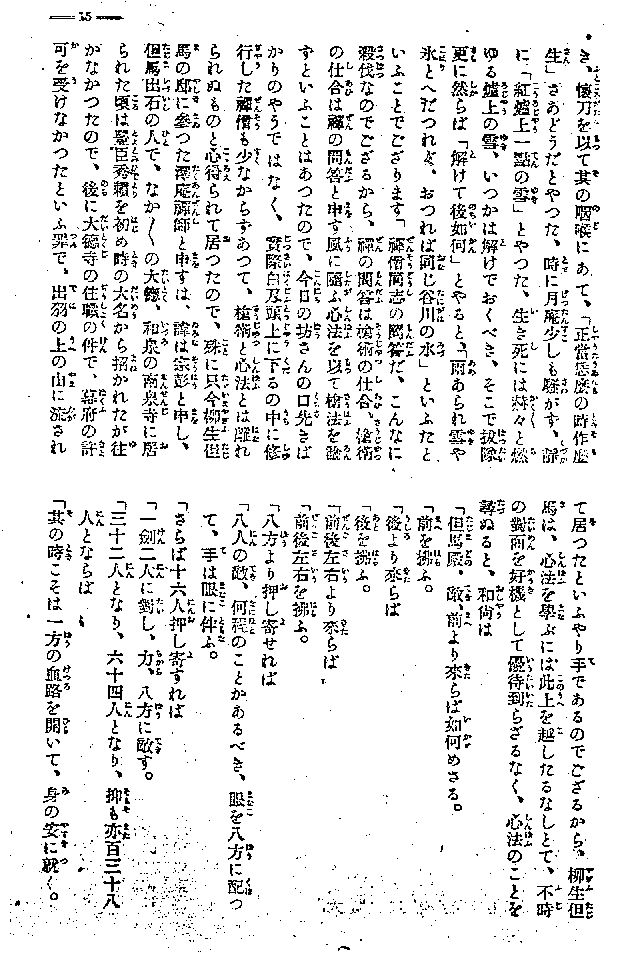 55
き、懐刀を以て其の咽喉にあて、「正當恁麼の時作麼
生」さあどうだとやつた、時に月庵少しも騒がず、靜
に「紅爐上一點の雪」とやつた、生き死には粦々と燃
ゆる爐上の雪、いつかは解けておくべき、そこで拔隊
更に然らば「解けて後如何」とやると、「雨あられ雪や
氷とへだつれど、おつれば同じ谷川の水」といふたと
いふことでござります「禪僧萬志の問答だ、こんなに
殺伐なのでござるから、禪の問答は槍術の仕合、槍術
の仕合は禪の問答と申す風に隨ふ心法を以て槍法を論
すといふことはあつたので、今日の坊さんの口先きば
かりのやうではなく、實際白刄頭上に下るの中に修
行した禪僧も少なからずあつて、槍術と心法とは離れ
られぬものと心得られて居つたので、殊に只今柳生但
馬の邸に參つた澤庵禪師と申すは、諱は宗彭と申し、
但馬出石の人で、なか〳〵の大德、和泉の南泉寺に居
られた頃は豐臣秀賴を初め時の大名から招かれたが往
がなかつたので、後に大德寺の住職の件で、幕府の許
可を受けなかつたといふ罪で、出羽の上の山に流され
て居つたといふやり手であるのでござるから、柳生但
馬は、心法を學ぶには此上を越したるなしとて、不時
の對面を好機として優待到らざるなく、心法のことを
尋ぬると、和尚は
「但馬殿、敵、前より來らば如何めさる。
「前を拂ふ。
「後より來らば
「後を拂ふ。
「前後左右より來らば
「前後左右を拂ふ。
「八方より押し寄せれば
「八人の敵、何程のことかあるべき、眼を八方に配つ
て、手は眼に伴ふ。
「さらば十六人押し寄すれば
「一劍二人に對し、力、八方に敵す。
「三十二人となり、六十四人となり、抑も亦百二十八
人とならば
「其の時こそは一方の血路を開いて、身の安に就く。